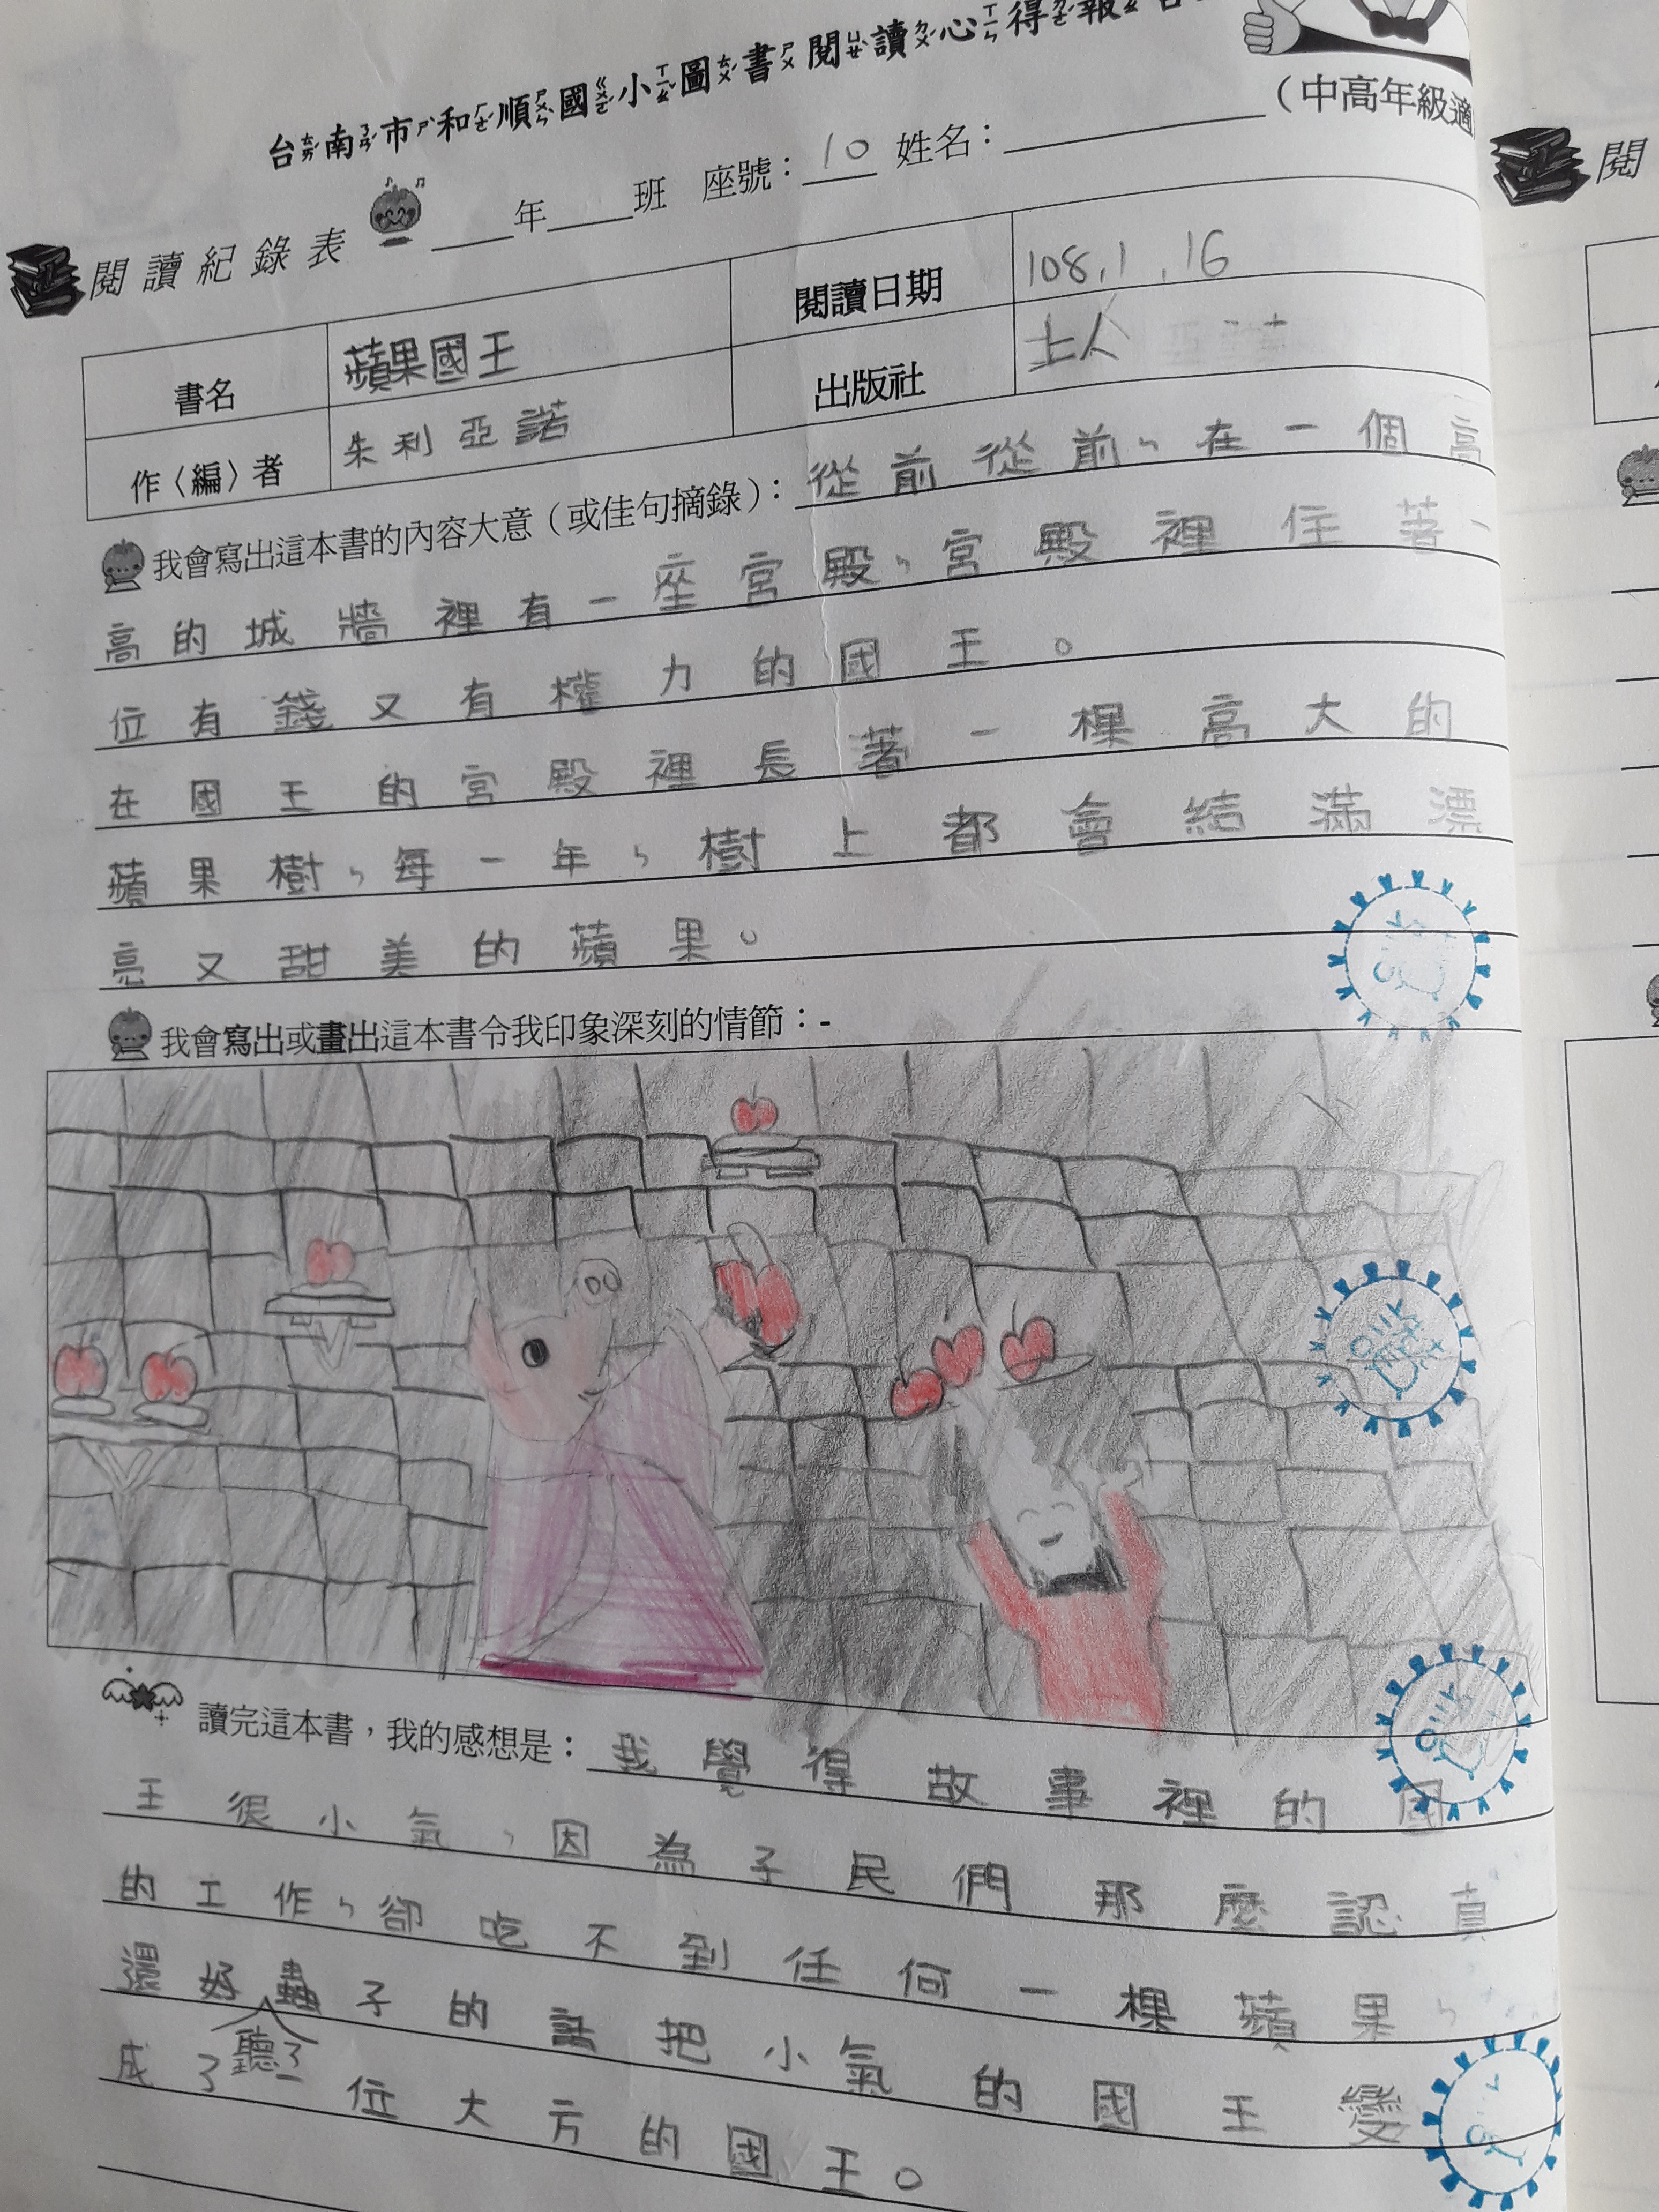 台南市和順國小圖書閱讀心得報告
(中高年級適
閱讀紀錄表 ____年____班 座號：10 姓名：
書名 蘋果國王 閱讀日期 108.1.16
作〈編〉者 朱利亞諾 出版社 上人
我會寫出這本書的內容大意（或佳句摘錄）：從前從前，在一個高
高的城牆裡有一座宮殿，宮殿裡住著一
位有錢又有權力的國王。
在國王的宮殿裡長著一棵高大的
蘋果樹，每一年，樹上都會結滿漂
亮又甜美的蘋果。
我會寫出或畫出這本書令我印象深刻的情節：-
讀完這本書，我的感想是：我覺得故事裡的國
王很小氣，因為子民們那麼認真
的工作，卻吃不到任何一棵蘋果，
還好蟲子的話把小氣的國王變
聽了
成了一位大方的國王。
閱